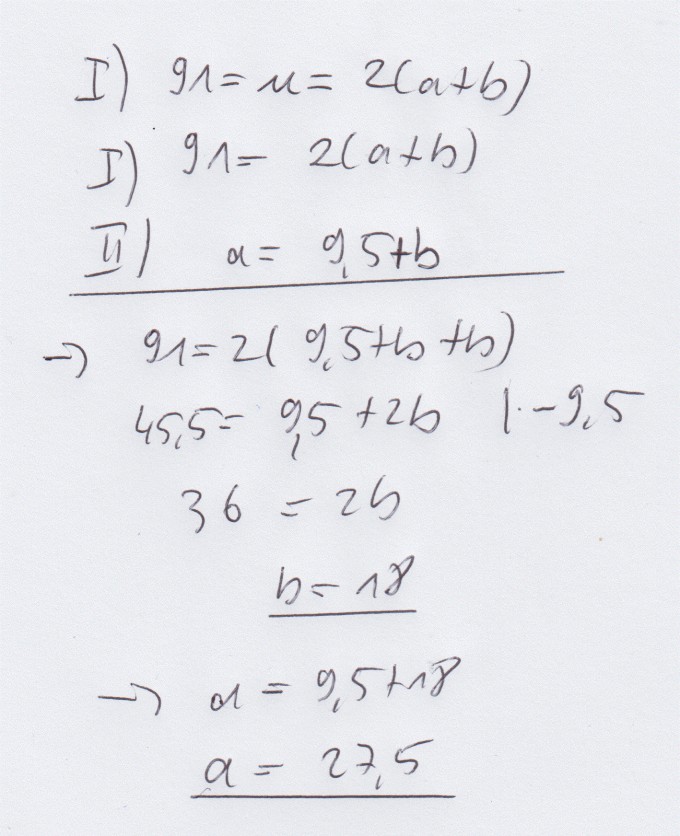 I) 91 = u = 2(a+b)
I) 91 = 2(a+b)
II) a = 9,5+b
→ 91 = 2( 9,5+b +b)
45,5 = 9,5 +2b |·-9,5
36 = 2b
b = 18
→ a = 9,5+18
a = 27,5